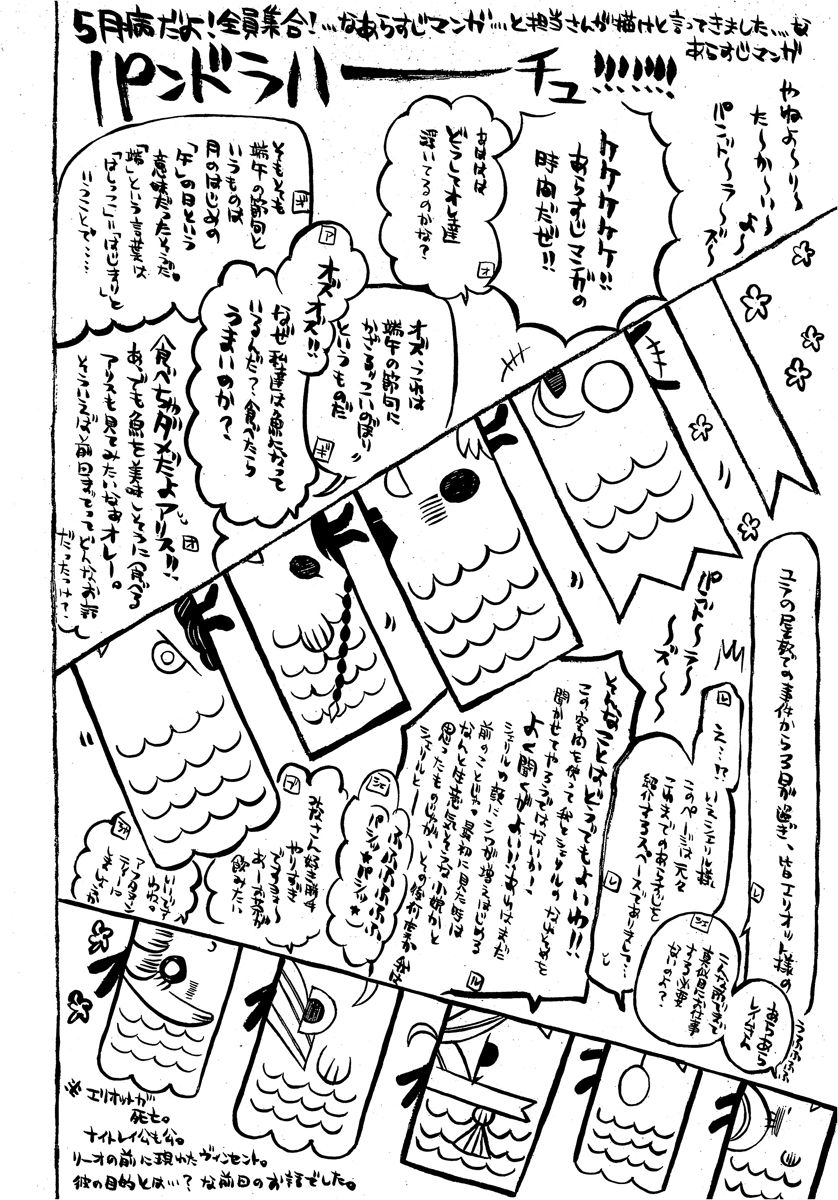 5月病だよ!全員集合!…なあらすじマンガ…と担当さんが描けと言ってきました…な
あらすじマンガ
パンドラハーーチュ!!!!!!!
やねよ～り～
た～か～い～
よ～
パンド～ラ～
ズ～
ケケケケケ!!
あらすじマンガの
時間だぜ!!
あははは
どうしてオレ達
浮いてるのかな?
オ
そもそも
端午の節句と
いうものは
月のはじめの
「午」の日という
意味だったそうだ。
「端」という言葉は
「はしっこ」「はじまり」と
いうことで……
ギ
ア
オズオズ!!
なぜ私達は魚になって
いるんだ?食べたら
うまいのか?
オズ、これは
端午の節句に
かざるこいのぼり
というものだ
ギ
食べちゃダメだよアリス!!
あ、でも魚を美味しそうに食べる
アリスも見てみたいなあオレー。
そういえば前回までってどんなお話
だったっけて?
オ
パンド～ラ～
ズ～
ユラの屋敷での事件から3日が過ぎ、皆エリオット様の
レ
あらあら
レイムさん
うふふふふ
こんな所でまで
真面目にお仕事
する必要
ないのよ?
シェ
レ
え…!?
いえシェリル様、
このページは元々
これまでのあらすじを
紹介するスペースでありまして…
レ
そんなことはどうでもよいわ!!
この空間を使って我とシェリルのなれそめを
聞かせてやろうではないか!
よく聞くがよい!!あれはまだ
シェリルの顔にシワが増えはじめる
前のことじゃ。最初に見た時は
なんと生意気そうな小娘かと
思ったものじゃが、その後何度か会ば
シェリルと—
ル
シェ
ふふふふふふ
パシッ☆パシッ☆
ブ
みなさん好き勝手
やりすぎ
ですヨォ～
あーお茶が
飲みたい
シャ
アフタヌーン
ティーに
しましょうか
※エリオットが
死亡。
ナイトレイ公も亡。
リーオの前に現れたヴィンセント。
彼の目的とは…?な前回のお話でした。